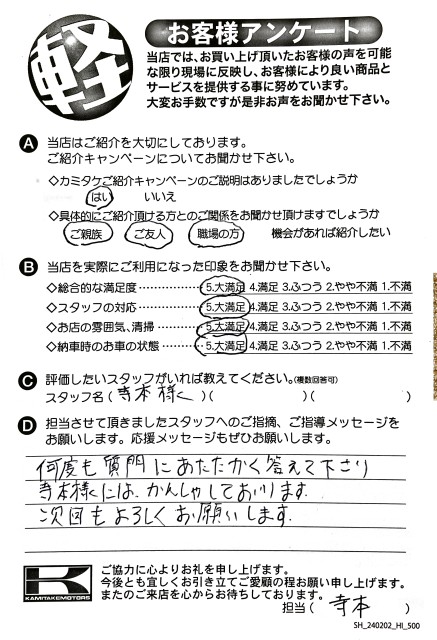 軽
お客様アンケート
当店では、お買い上げ頂いたお客様の声を可能
な限り現場に反映し、お客様により良い商品と
サービスを提供する事に努めています。
大変お手数ですが是非お声をお聞かせ下さい。
A 当店はご紹介を大切にしております。
ご紹介キャンペーンについてお聞かせ下さい。
◇カミタケご紹介キャンペーンのご説明はありましたでしょうか
はい いいえ
◇具体的にご紹介頂ける方とのご関係をお聞かせ頂けますでしょうか
ご親族 ご友人 職場の方 機会があれば紹介したい
B 当店を実際にご利用になった印象をお聞かせ下さい。
◇総合的な満足度 5.大満足 4.満足 3.ふつう 2.やや不満 1.不満
◇スタッフの対応 5.大満足 4.満足 3.ふつう 2.やや不満 1.不満
◇お店の雰囲気、清掃 5.大満足 4.満足 3.ふつう 2.やや不満 1.不満
◇納車時のお車の状態 5.大満足 4.満足 3.ふつう 2.やや不満 1.不満
C 評価したいスタッフがいれば教えてください。(複数回答可)
スタッフ名(寺本様く)( )( )
D 担当させて頂きましたスタッフへのご指摘、ご指導メッセージを
お願いします。応援メッセージもぜひお願いします。
何度も質門にあたたかく答えて下さり
寺本様には、かんしゃしております。
次回もよろしくお願いします。
K
KAMITAKEMOTORS
ご協力に心よりお礼を申し上げます。
今後とも宜しくお引き立てご愛顧の程お願い申し上げます。
またのご来店を心からお待ちしております。
担当(寺本)
SH_240202_HI_500